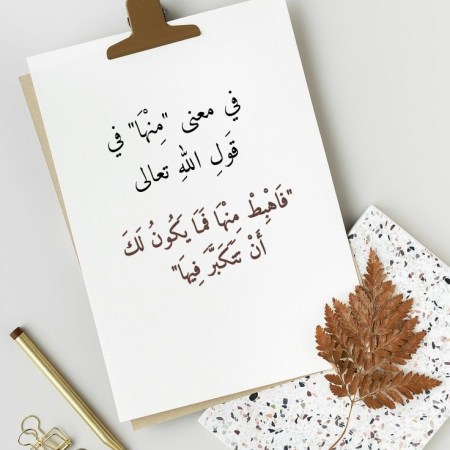 في معنى "مِنْهَا" في
قَولِ اللهِ تعالى
"فَاهْبِطْ مِنْهَا فَمَا يَكُونُ لَكَ
أَنْ تَتَكَبَّرَ فِيهَا"